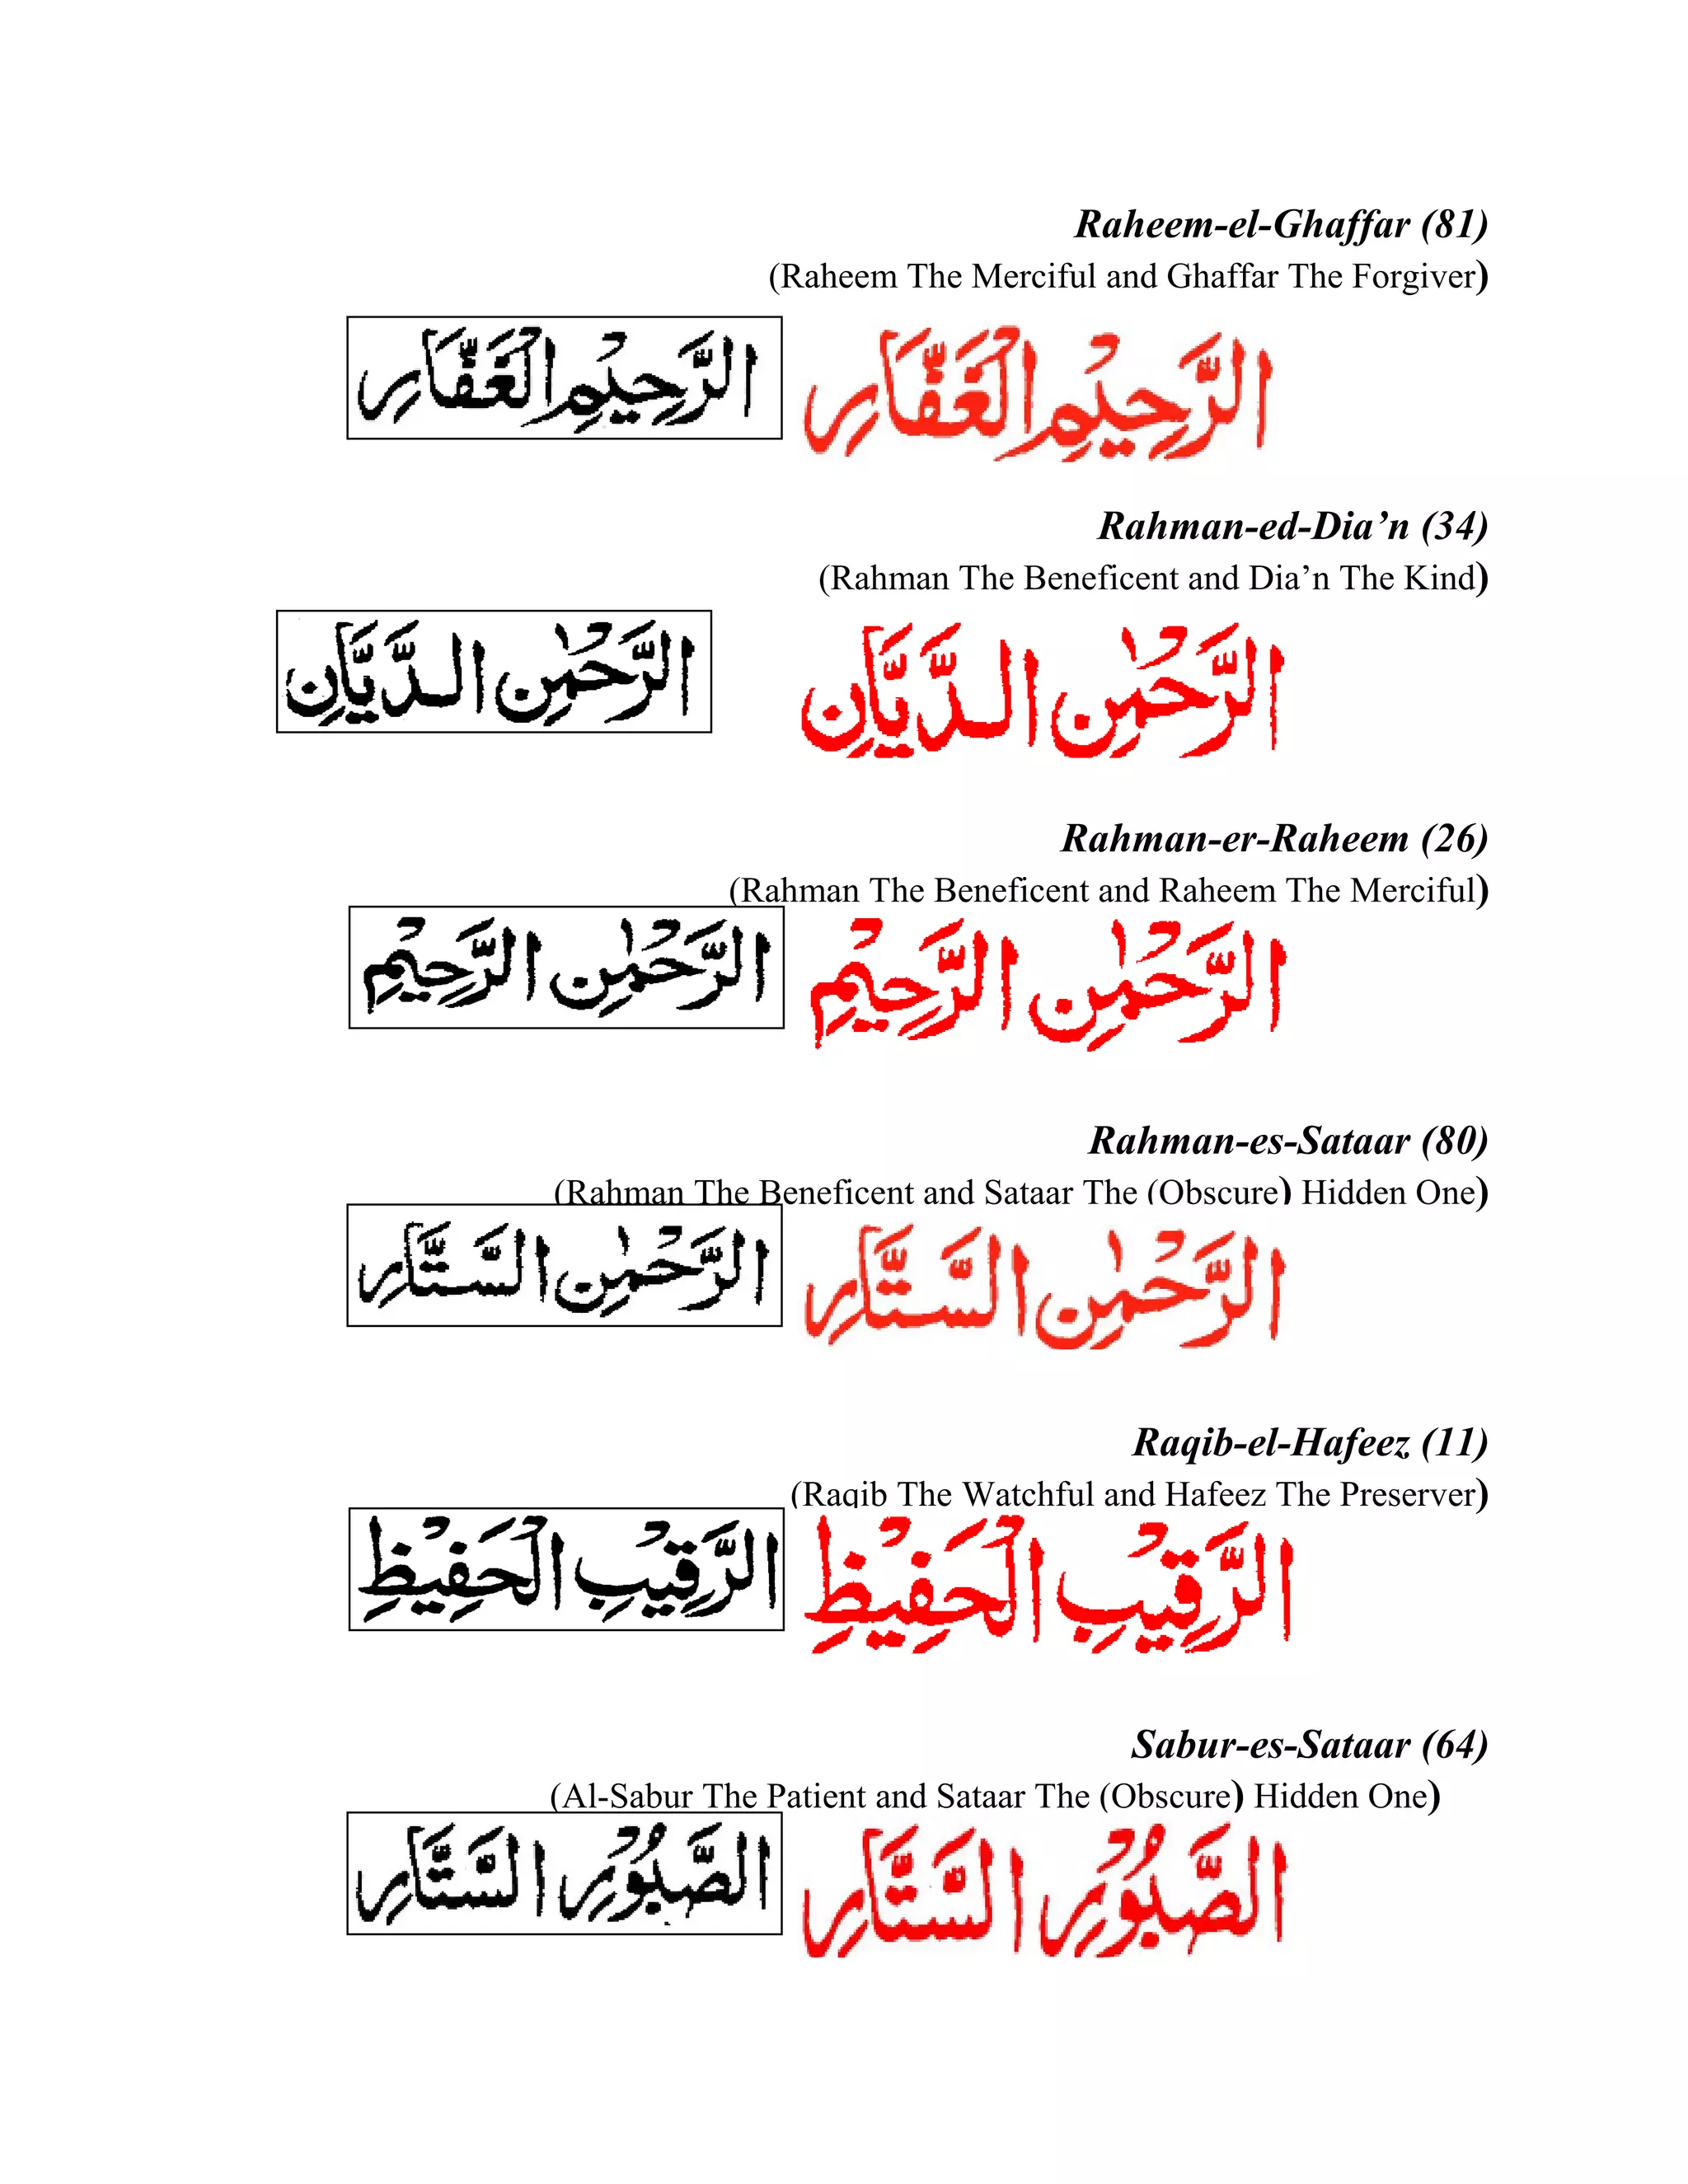 Raheem-el-Ghaffar (81)
(Raheem The Merciful and Ghaffar The Forgiver)
الرَّحِيْمِ الْغَفَّارِ الرَّحِيْمِ الْغَفَّارِ
Rahman-ed-Dia’n (34)
(Rahman The Beneficent and Dia’n The Kind)
الرَّحْمٰنِ الدَّيَّانِ الرَّحْمٰنِ الدَّيَّانِ
Rahman-er-Raheem (26)
(Rahman The Beneficent and Raheem The Merciful)
الرَّحْمٰنِ الرَّحِيْمِ الرَّحْمٰنِ الرَّحِيْمِ
Rahman-es-Sataar (80)
(Rahman The Beneficent and Sataar The (Obscure) Hidden One)
الرَّحْمٰنِ السَّتَّارِ الرَّحْمٰنِ السَّتَّارِ
Raqib-el-Hafeez (11)
(Raqib The Watchful and Hafeez The Preserver)
الرَّقِيْبِ الْحَفِيْظِ الرَّقِيْبِ الْحَفِيْظِ
Sabur-es-Sataar (64)
(Al-Sabur The Patient and Sataar The (Obscure) Hidden One)
الصَّبُوْرِ السَّتَّارِ الصَّبُوْرِ السَّتَّارِ